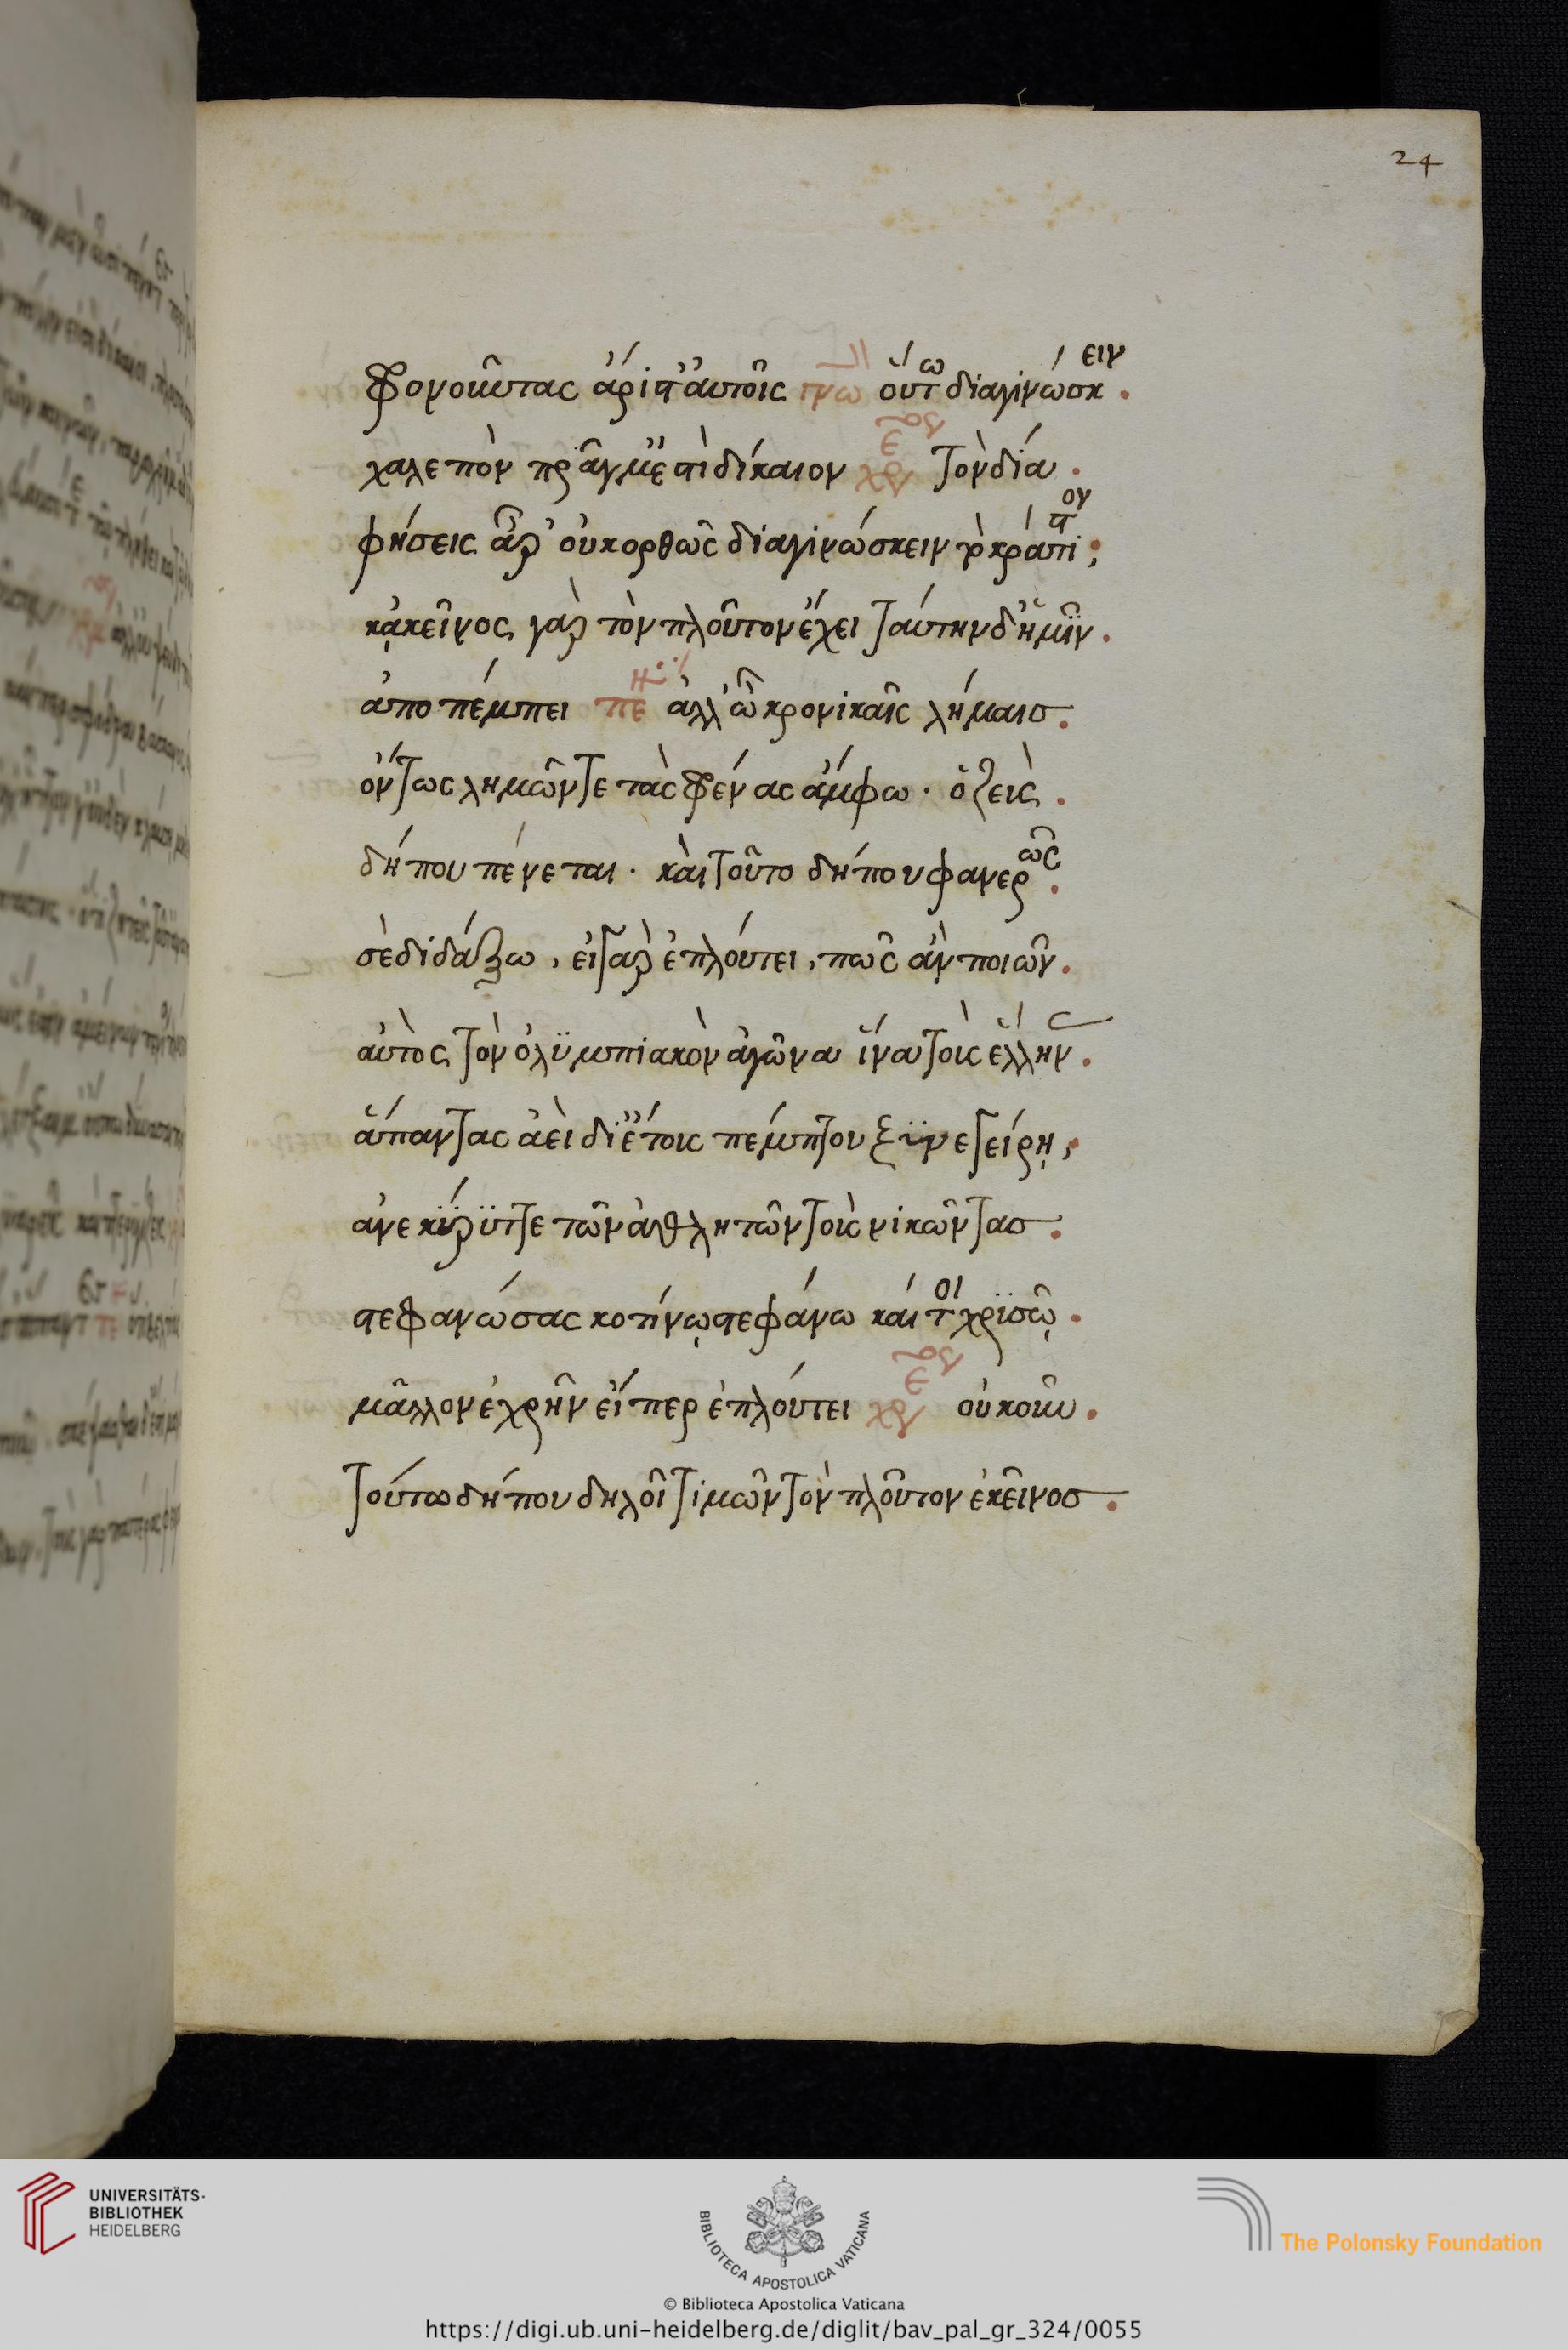 24
φρονοῦντας ἄριστ' αὐτοῖς πνω οὕτω διαγινώσκειν .
χαλεπὸν πρᾶγμ' ἐστὶ δίκαιον χρ τὸν δία .
φήσεις ἆρ' οὐκ ὀρθῶς διαγινώσκειν τὸ κράτιστον ;
κἀκεῖνος γὰρ τὸν πλοῦτον ἔχει ταύτην δ' ἡμῖν .
ἀποπέμπει πε ἀλλ' ὦ κρονικαῖς λήμαις .
ὄντως λημῶντε τὰς φρένας ἄμφω · ὁ ζεὺς .
δήπου πένεται · καὶ τοῦτο δήπου φανερῶς .
σὲ διδάξω , εἰ γὰρ ἐπλούτει , πῶς ἂν ποιῶν .
αὐτὸς τὸν ὀλυμπιακὸν ἀγῶνα ἵνα τοὺς ἕλληνας .
ἅπαντας ἀεὶ δι' ἔτους πέμπτου ξυνεγείρῃ ,
ἀνεκήρυττε τῶν ἀθλητῶν τοὺς νικῶντας .
στεφανώσας κοτίνῳ στεφάνω καί τοι χρυσῷ .
μᾶλλον ἐχρῆν εἴπερ ἐπλούτει χρ οὐκοῦν .
τούτω δήπου δηλοῖ τιμῶν τὸν πλοῦτον ἐκεῖνος .
UNIVERSITÄTS-
BIBLIOTHEK
HEIDELBERG
BIBLIOTECA APOSTOLICA VATICANA
The Polonsky Foundation
© Biblioteca Apostolica Vaticana
https://digi.ub.uni-heidelberg.de/diglit/bav_pal_gr_324/0055